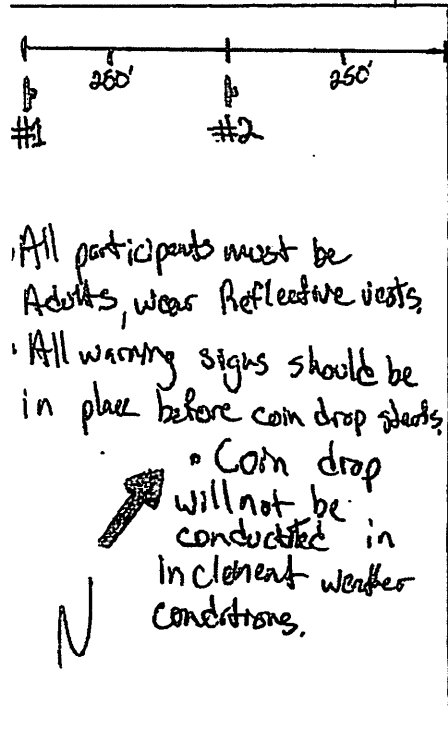 250' 250'
#1 #2
All participants must be
Adults, wear Reflective vests.
All warning signs should be
in place before coin drop starts.
• Coin drop
will not be
conducted in
inclement weather
conditions.
N